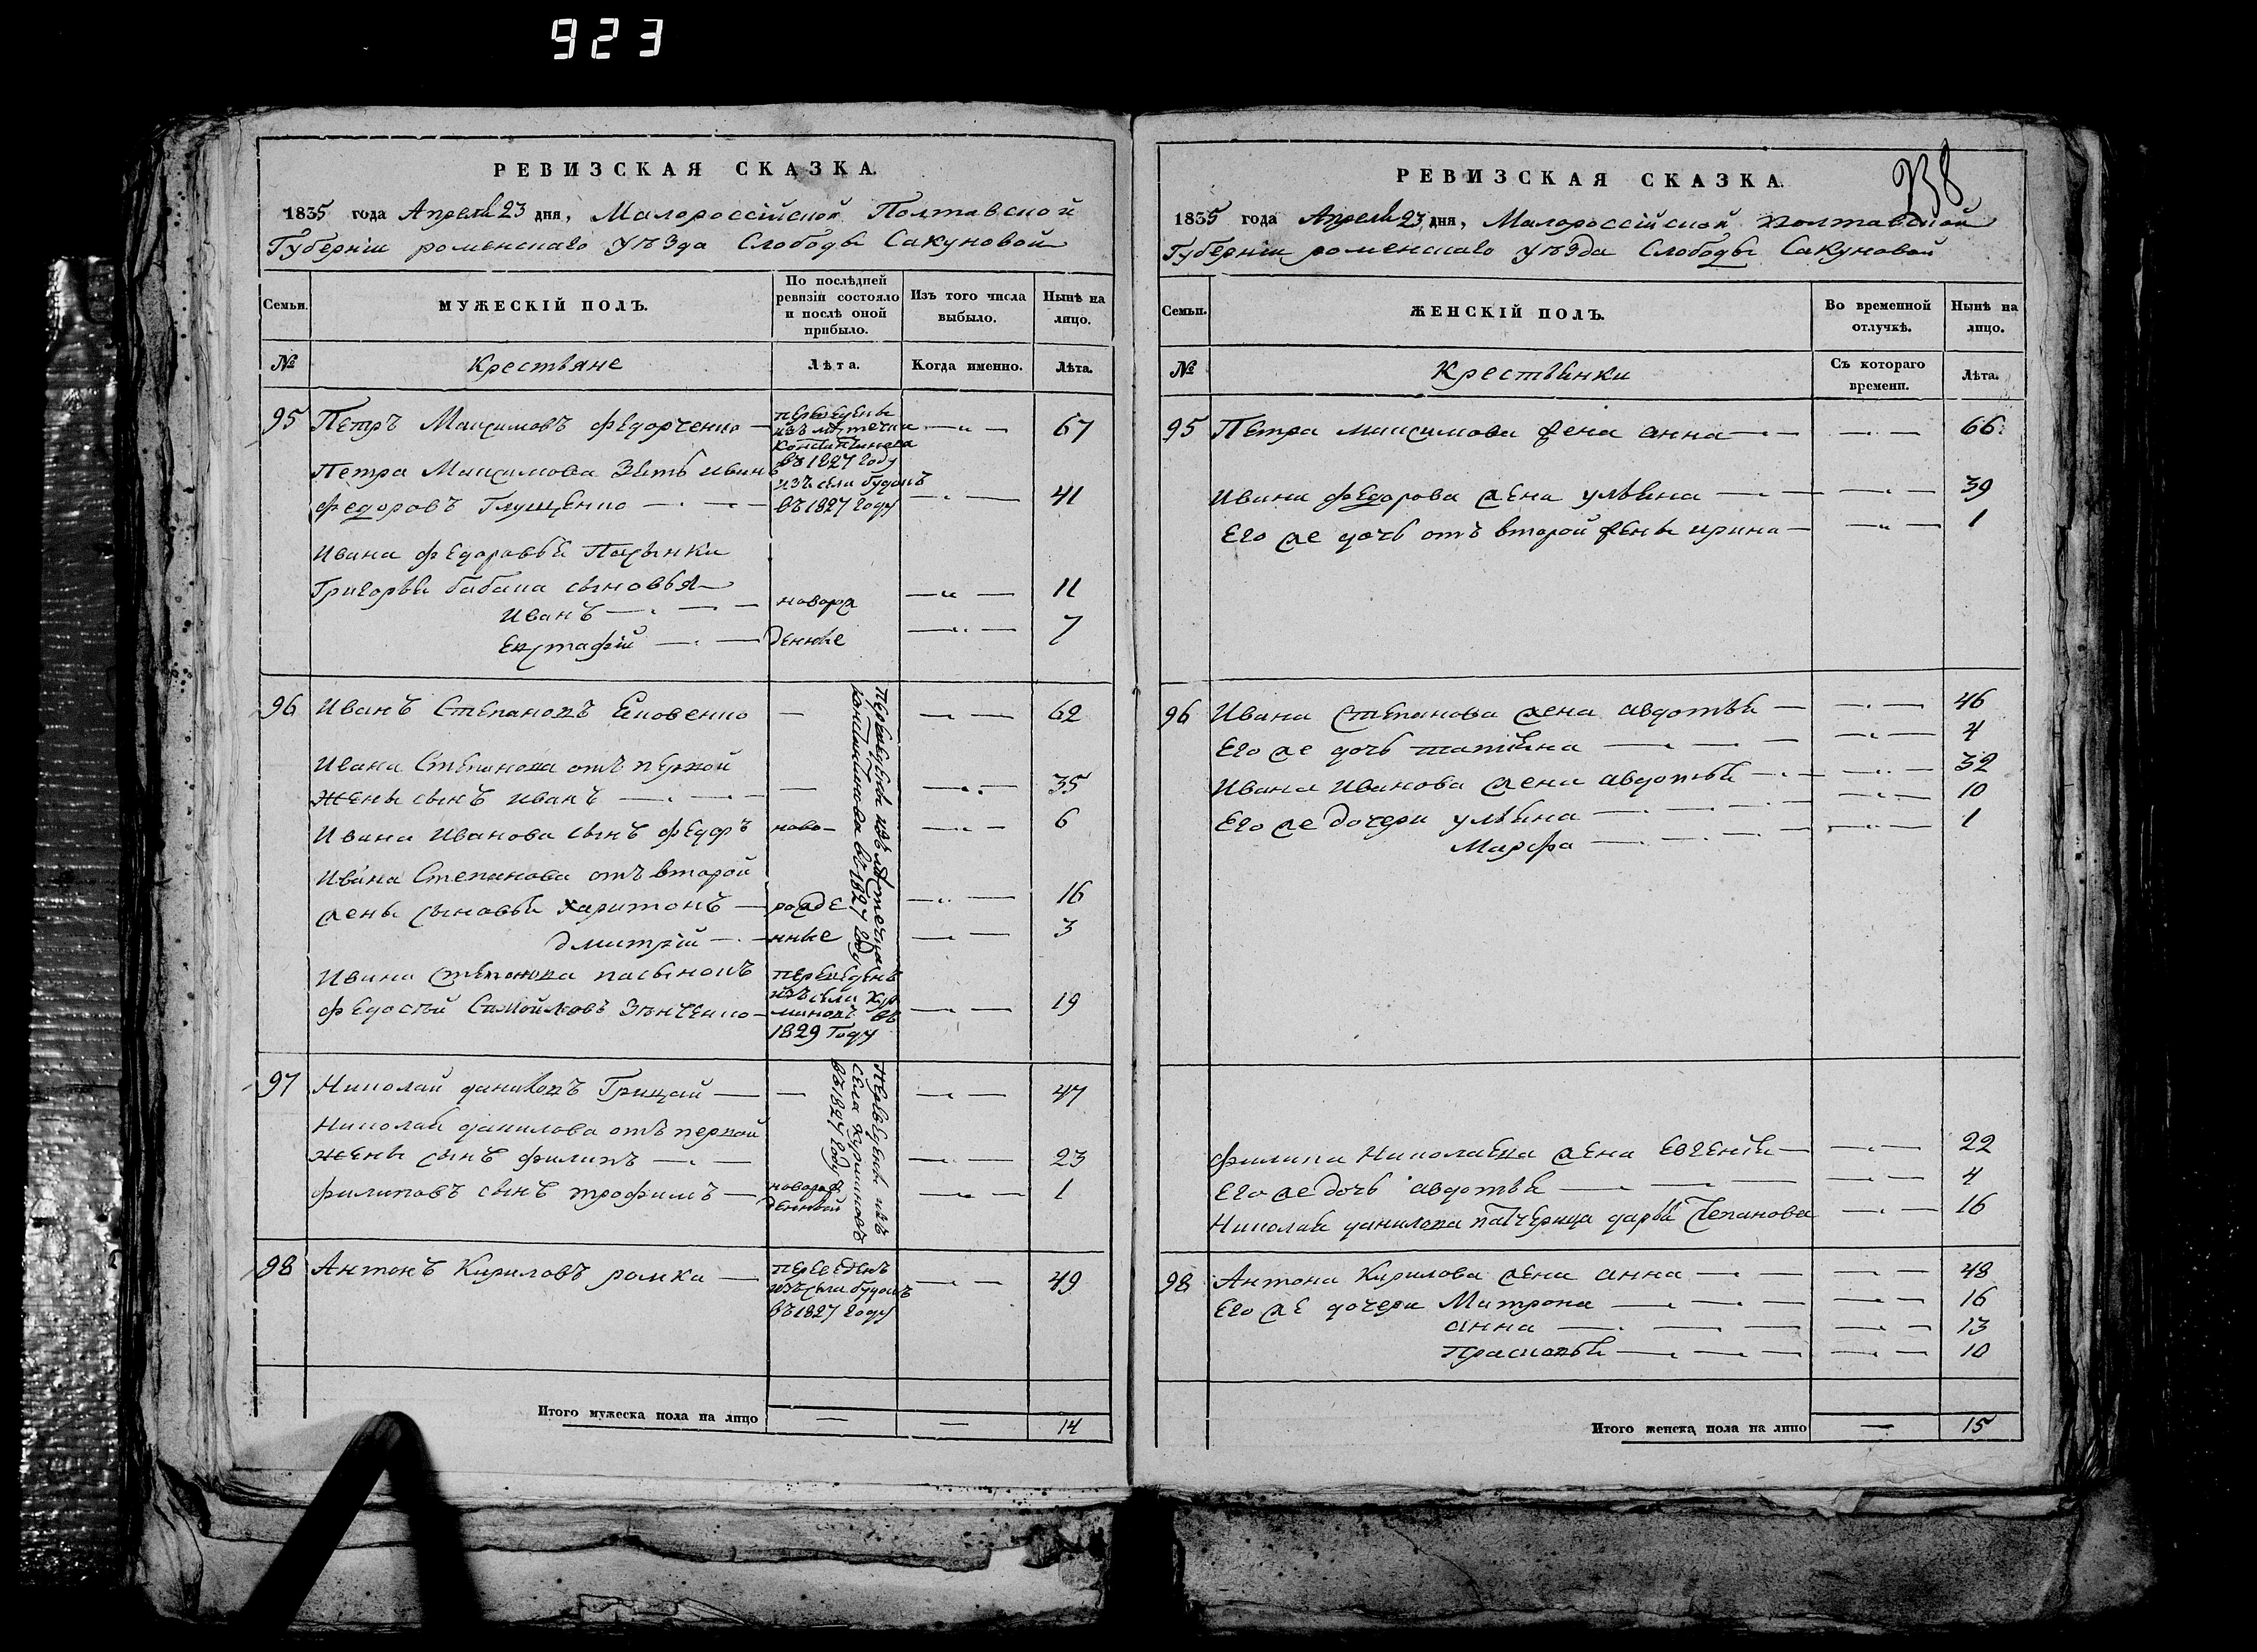 923
РЕВИЗСКАЯ СКАЗКА.
1835 года Апреля 23 дня, Малороссійской Полтавской
Губерніи роменскаго уѣзда Слободы Сакуновой
Семьи.
МУЖЕСКІЙ ПОЛЪ.
По послѣдней ревизіи состояло и послѣ оной прибыло.
Изъ того числа выбыло.
Нынѣ на лицо.
№
Крестьяне
Лѣта.
Когда именно.
Лѣта.
95 Петръ Максимовъ Федорченко — переведены изъ мѣстечка Константинова въ 1827 году — 67
Петра Максимова зять Иванъ
Федоровъ Глущенко — изъ села будокъ въ 1827 году — 41
Ивана Федорова Пасынки
Григорья бабака сыновья
Иванъ — новорож — 11
Евстафій — денные — 7
96 Иванъ Степановъ Яковенко — 62
переведены изъ мѣстечка Константинова въ 1827 году
Ивана Степанова отъ первой
жены сынъ иванъ — 35
Ивана Иванова сынъ федоръ ново- — 6
Ивана Степанова отъ второй
жены сыновья харитонъ — рожде — 16
дмитрій — нные — 3
Ивана степанова пасынокъ
федосѣй Самойловъ Зѣнченко — переведенъ изъ села Кур миновъ въ 1829 Году — 19
97 Николай даниловъ Грицай — 47
Переведены изъ села Курминовъ въ 1827 году
Николая данилова отъ первой
жены сынъ филипъ — 23
филиповъ сынъ трофимъ — новорож денный — 1
98 Антонъ Кириловъ ромка — переведенъ изъ села будокъ въ 1827 году — 49
Итого мужеска пола на лицо — — 14
РЕВИЗСКАЯ СКАЗКА.
138
1835 года Апреля 23 дня, Малороссійской полтавской
Губерніи роменскаго уѣзда Слободы Сакуновой
Семьи.
ЖЕНСКІЙ ПОЛЪ.
Во временной отлучкѣ.
Нынѣ на лицо.
№
Крестьянки
Съ котораго времени.
Лѣта.
95 Петра максимова жена анна — 66
Ивана федорова жена ульяна — 39
Его же дочь отъ второй жены ирина — 1
96 Ивана степанова жена авдотья — 46
Его же дочь татьяна — 4
Ивана Иванова жена авдотья — 32
Его же дочери ульяна — 10
Марфа — 1
филипа Николаева жена Евгенія — 22
Его же дочь авдотья — 4
Николая данилова патчерица дарья степанова — 16
98 Антона Кирилова жена анна — 48
Его же дочери Матрона — 16
анна — 13
Прасковья — 10
Итого женска пола на лицо — 15